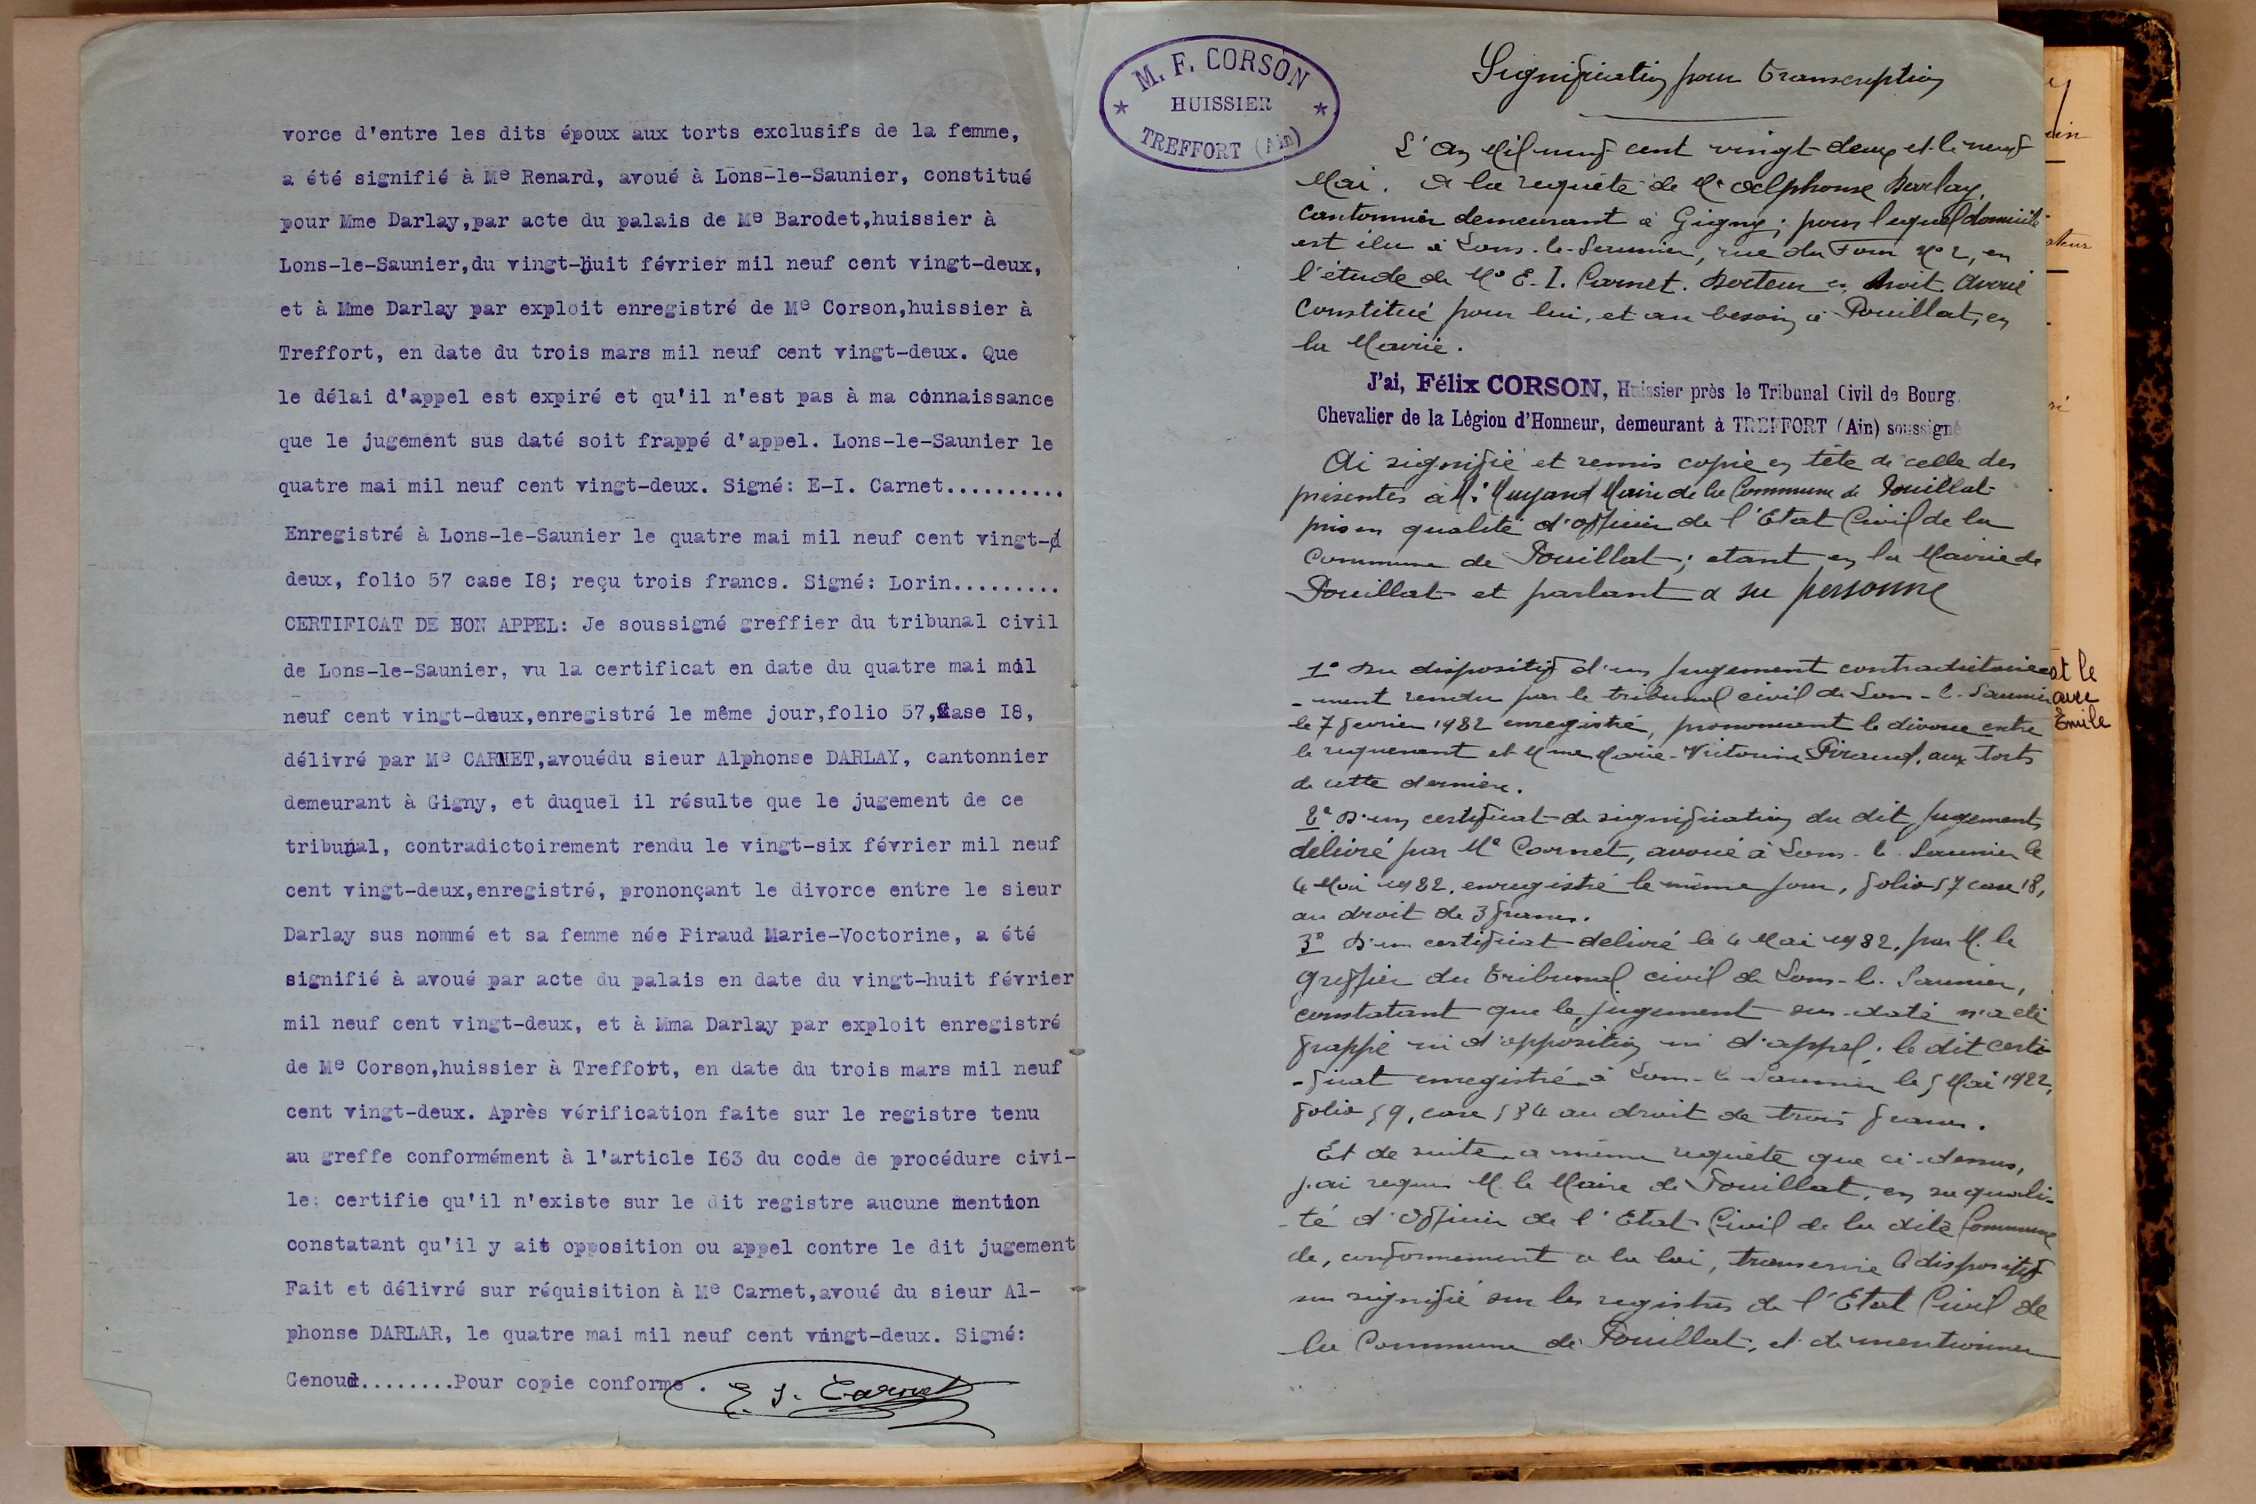 vorce d'entre les dits époux aux torts exclusifs de la femme,
a été signifié à Me Renard, avoué à Lons-le-Saunier, constitué
pour Mme Darlay,par acte du palais de Me Barodet,huissier à
Lons-le-Saunier,du vingt-huit février mil neuf cent vingt-deux,
et à Mme Darlay par exploit enregistré de Me Corson,huissier à
Treffort, en date du trois mars mil neuf cent vingt-deux. Que
le délai d'appel est expiré et qu'il n'est pas à ma connaissance
que le jugement sus daté soit frappé d'appel. Lons-le-Saunier le
quatre mai mil neuf cent vingt-deux. Signé: E-I. Carnet..........
Enregistré à Lons-le-Saunier le quatre mai mil neuf cent vingt-
deux, folio 57 case I8; reçu trois francs. Signé: Lorin.........
CERTIFICAT DE NON APPEL: Je soussigné greffier du tribunal civil
de Lons-le-Saunier, vu la certificat en date du quatre mai mil
neuf cent vingt-deux,enregistré le même jour,folio 57,case I8,
délivré par Me CARNET,avouédu sieur Alphonse DARLAY, cantonnier
demeurant à Gigny, et duquel il résulte que le jugement de ce
tribunal, contradictoirement rendu le vingt-six février mil neuf
cent vingt-deux,enregistré, prononçant le divorce entre le sieur
Darlay sus nommé et sa femme née Piraud Marie-Voctorine, a été
signifié à avoué par acte du palais en date du vingt-huit février
mil neuf cent vingt-deux, et à Mma Darlay par exploit enregistré
de Me Corson,huissier à Treffort, en date du trois mars mil neuf
cent vingt-deux. Après vérification faite sur le registre tenu
au greffe conformément à l'article I63 du code de procédure civi-
le: certifie qu'il n'existe sur le dit registre aucune mention
constatant qu'il y ait opposition ou appel contre le dit jugement
Fait et délivré sur réquisition à Me Carnet,avoué du sieur Al-
phonse DARLAR, le quatre mai mil neuf cent vingt-deux. Signé:
Genoud........Pour copie conforme.
E. I. Carnet
M. F. CORSON
HUISSIER
TREFFORT (Ain)
Signification pour transcription
L'an Mil neuf cent vingt deux et le neuf
Mai. A la requête de Mr Alphonse Darlay,
cantonnier demeurant à Gigny; pour lequel domicile
est élu à Lons-le-Saunier, rue du Four No 2, en
l'étude de Me E. I. Carnet. Docteur en Droit Avoué
constitué pour lui, et au besoin à Pouillat, en
la Mairie.
J'ai, Félix CORSON, Huissier près le Tribunal Civil de Bourg
Chevalier de la Légion d'Honneur, demeurant à TREFFORT (Ain) soussigné
Ai signifié et remis copie en tête de celle des
présentes à Mr Muyand Maire de la Commune de Pouillat
pris en qualité d'officier de l'Etat Civil de la
Commune de Pouillat; etant en la Mairie de
Pouillat et parlant a sa personne
1° Du dispositif d'un jugement contradictoire
-ment rendu par le tribunal civil de Lons-le-Saunier
le 7 fevrier 1922 enregistré, prononcant le divorce entre
le requerant et Mme Marie-Victorine Piraud, aux torts
de cette derniere.
2° D'un certificat de signification du dit jugement
délivré par Me Carnet, avoué à Lons-le-Saunier le
4 Mai 1922, enregistré le même jour, folio 57 case 18,
au droit de 3 francs.
3° D'un certificat delivré le 4 Mai 1922, par M. le
greffier du tribunal civil de Lons-le-Saunier,
constatant que le jugement sus-daté n'a eté
frappé ni d'opposition ni d'appel; le dit certi
-ficat enregistré à Lons-le-Saunier le 5 Mai 1922,
folio 59, case 584 au droit de trois francs.
Et de suite a même requête que ci-dessus,
j'ai requis M. le Maire de Pouillat, en sa quali-
-té d'Officier de l'Etat Civil de la dite Commune
de, conformement a la loi, transcrire le dispositif
sus signifié sur les registres de l'Etat Civil de
la Commune de Pouillat, et de mentionner
et le
avec
Emile